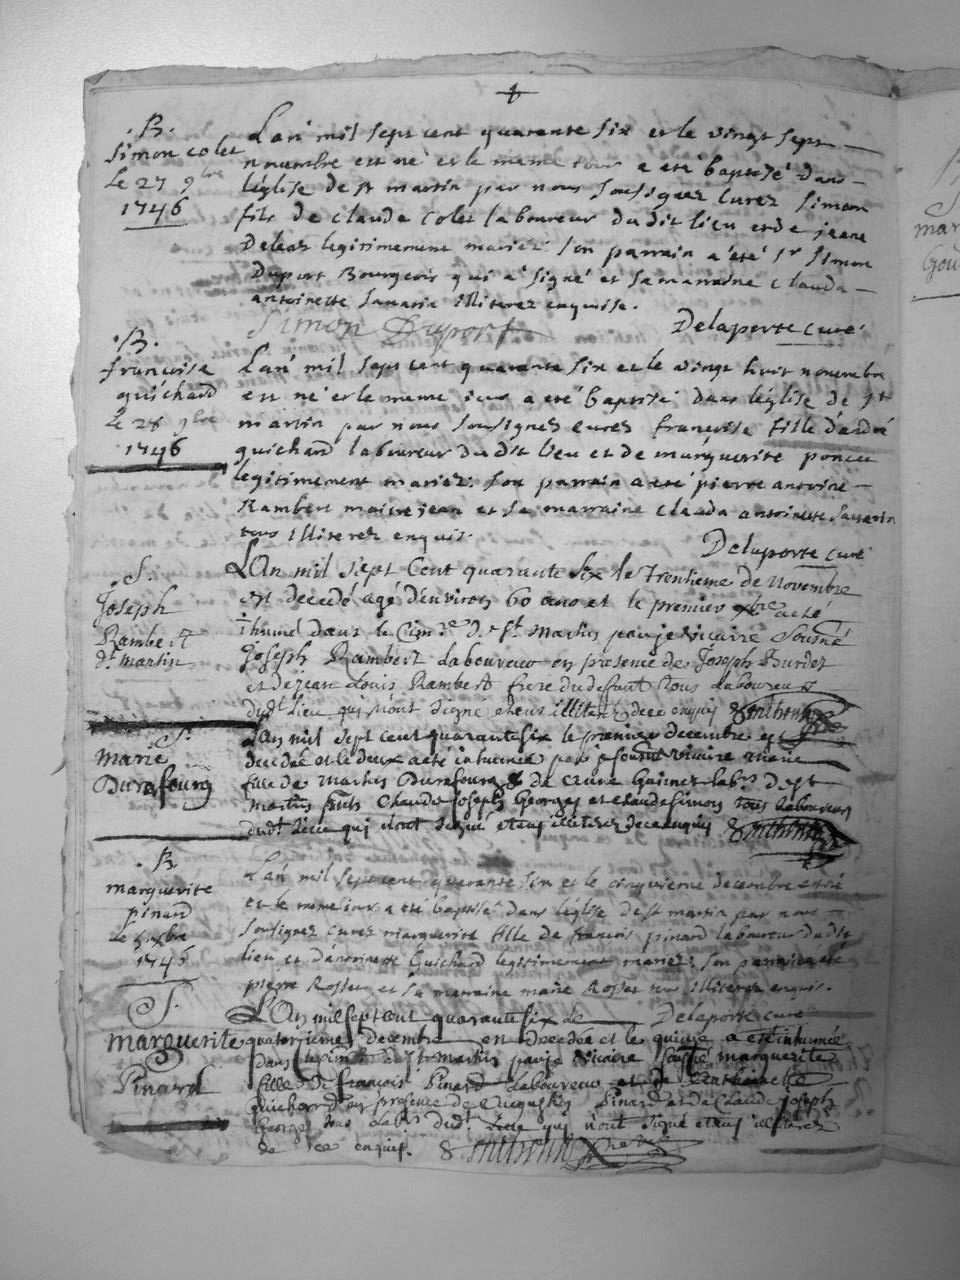 .B.
Simon colet
Le 27 9bre
1746
Lan mil sept cent quarante six et le vingt sept
novembre est né et le meme jour a eté baptisé dans
léglise de st martin par nous sousignez curez simon
fils de claude colet laboureur dudit lieu et de jeane
legitimement mariez son parrain a été sr simon
Duport Bourgeois qui a signé et sa marraine clauda
antoinette illiterez enquise.
Simon Duport
Delaporte curé
.B.
francoise
guichard
Le 28 9bre
1746
Lan mil sept cent quarante six et le vingt huit novembre
est né et le meme jour a eté baptisé dans léglise de st
martin par nous soussignez curez francoise fille dandré
guichard laboureur dudit lieu et de marguerite poncet
legitimement mariez. son parrain a eté pierre antoine
Rambert maitre jean et sa marraine clauda antoinette
tous illiterez enquis.
Delaporte curé
S.
Joseph
Rambert
de st martin
LAn mil sept Cent quarante six le Trentieme de Novembre
est decedé agé denviron 60 ans et le premier xbre a eté
inhumé dans le Cim.re de St. Martin par je vicaire Sousné
Joseph Rambert Laboureur en presence de Joseph Burdet
et de jean Louis Rambert frere du defunt tous Laboureurs
dudt lieu qui n'ont signé et eus illiterez de ce enquis
S.
Marie
Durafourg
Lan mil sept cent quarante six le premier decembre est
decedée et le deux a eté inhumée par je sousné vicaire marie
fille de Martin Durafourg & de labr de st
martin pnts Claude Joseph Georges et claude simon tous laboureurs
dudt lieu qui n'ont signé et eus illiterez de ce enquis
.B.
marguerite
pinard
Le 5 xbre
1746
Lan mil sept cent quarante six et le cinquieme decembre est né
et le meme jour a eté baptisé dans léglise de st martin par nous
soussignez curez marguerite fille de francois pinard laboureur dudit
lieu et d'antoinette Guichard legitimement mariez. son parrain a eté
pierre Rosset et sa marraine marie Rosset tous illiterez enquis.
Delaporte curé
S.
marguerite
Pinard
LAn mil sept cent quarante six le
quatorzieme decembre est decedée et le quinze a eté inhumée
dans le cimre de st martin par je vicaire sousné marguerite
fille de françois Pinard laboureur et de Anthoinette
Guichard en presence de Augustin Pinard et de Claude Joseph
Georges tous labrs dudt Lieu qui n'ont signé et eus illiterez
de ce enquis.